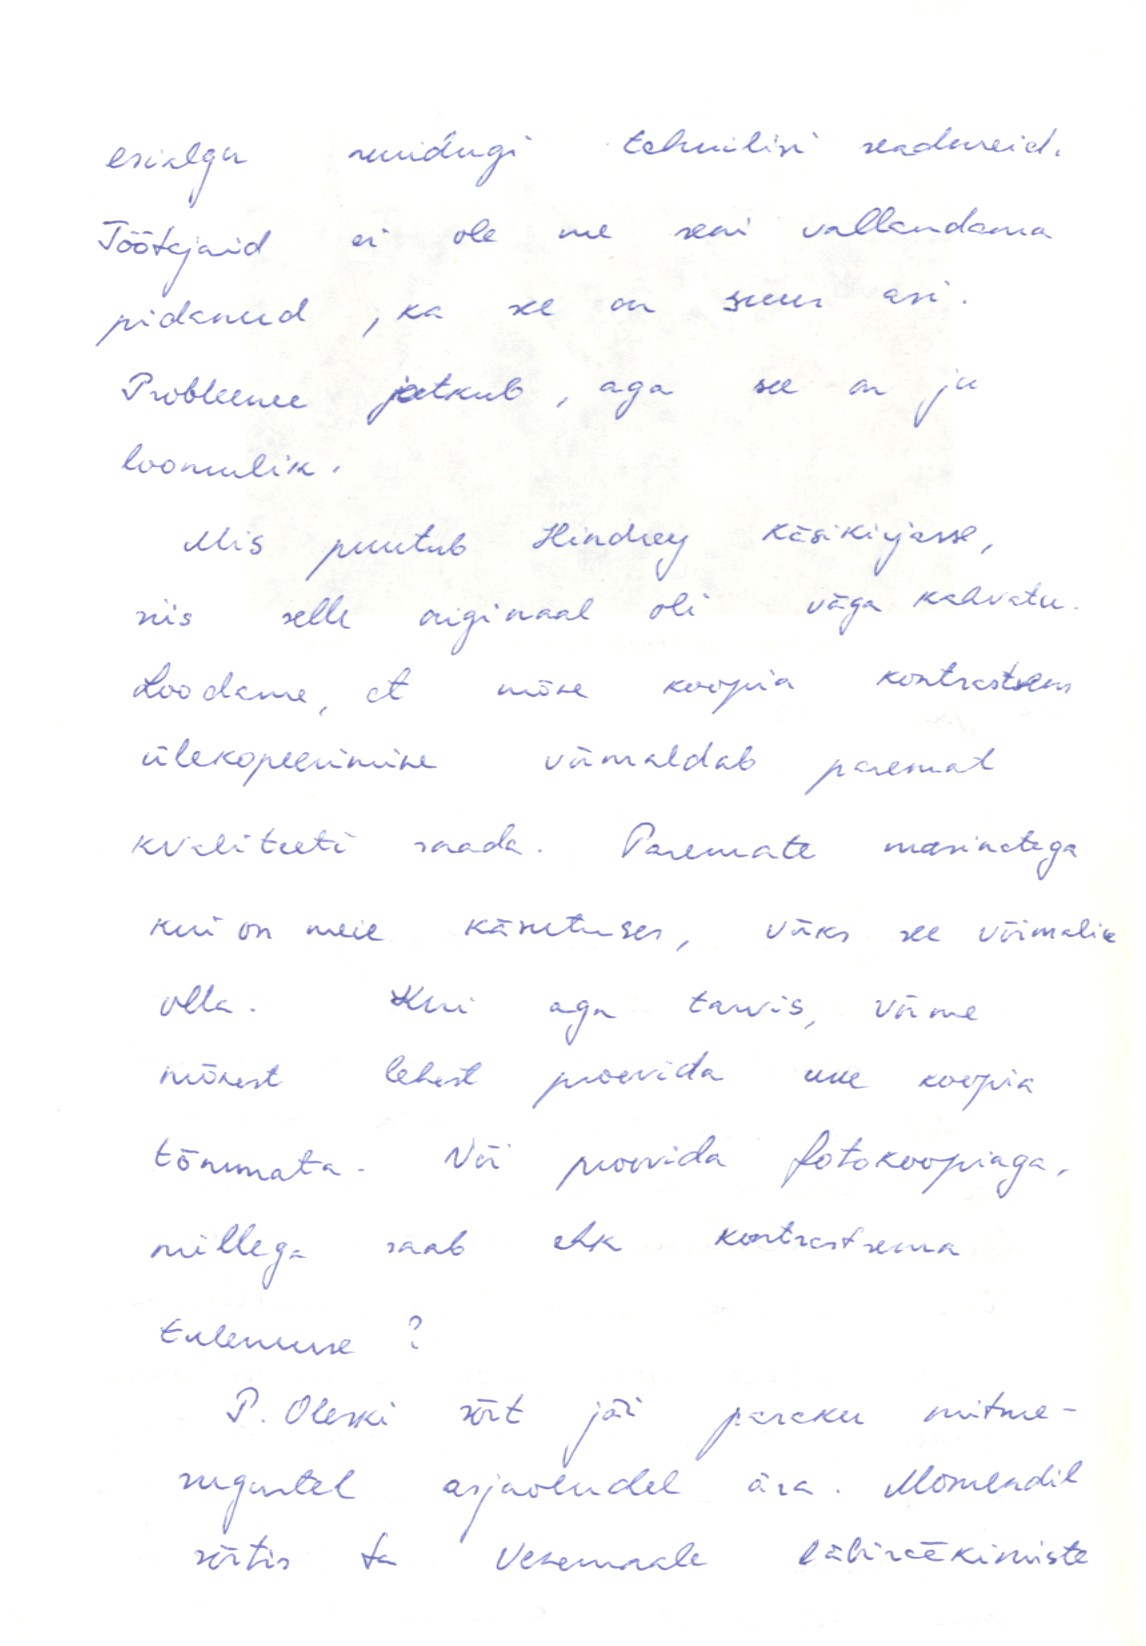 esialgu muidugi tehnilisi seadmeid.
Töötajaid ei ole me seni vallandama
pidanud, ka see on suur asi.
Probleeme jätkub, aga see on ju
loomulik.
Mis puutub Hindrey käsikirjasse,
siis selle originaal oli väga kahvatu.
Loodame, et mõne koopia kontrastsem
ülekopeerimine võimaldab paremat
kvaliteeti saada. Paremate masinatega
kui on meie käsutuses, võiks see võimalik
olla. Kui aga tarvis, võime
mõnest lehest proovida uue koopia
tõmmata. Või proovida fotokoopiaga,
millega saab ehk kontrastsema
tulemuse?
P. Oleski sõit jäi paraku mitme-
sugustel asjaoludel ära. Momendil
sõitis ta Venemaale läbirääkimiste